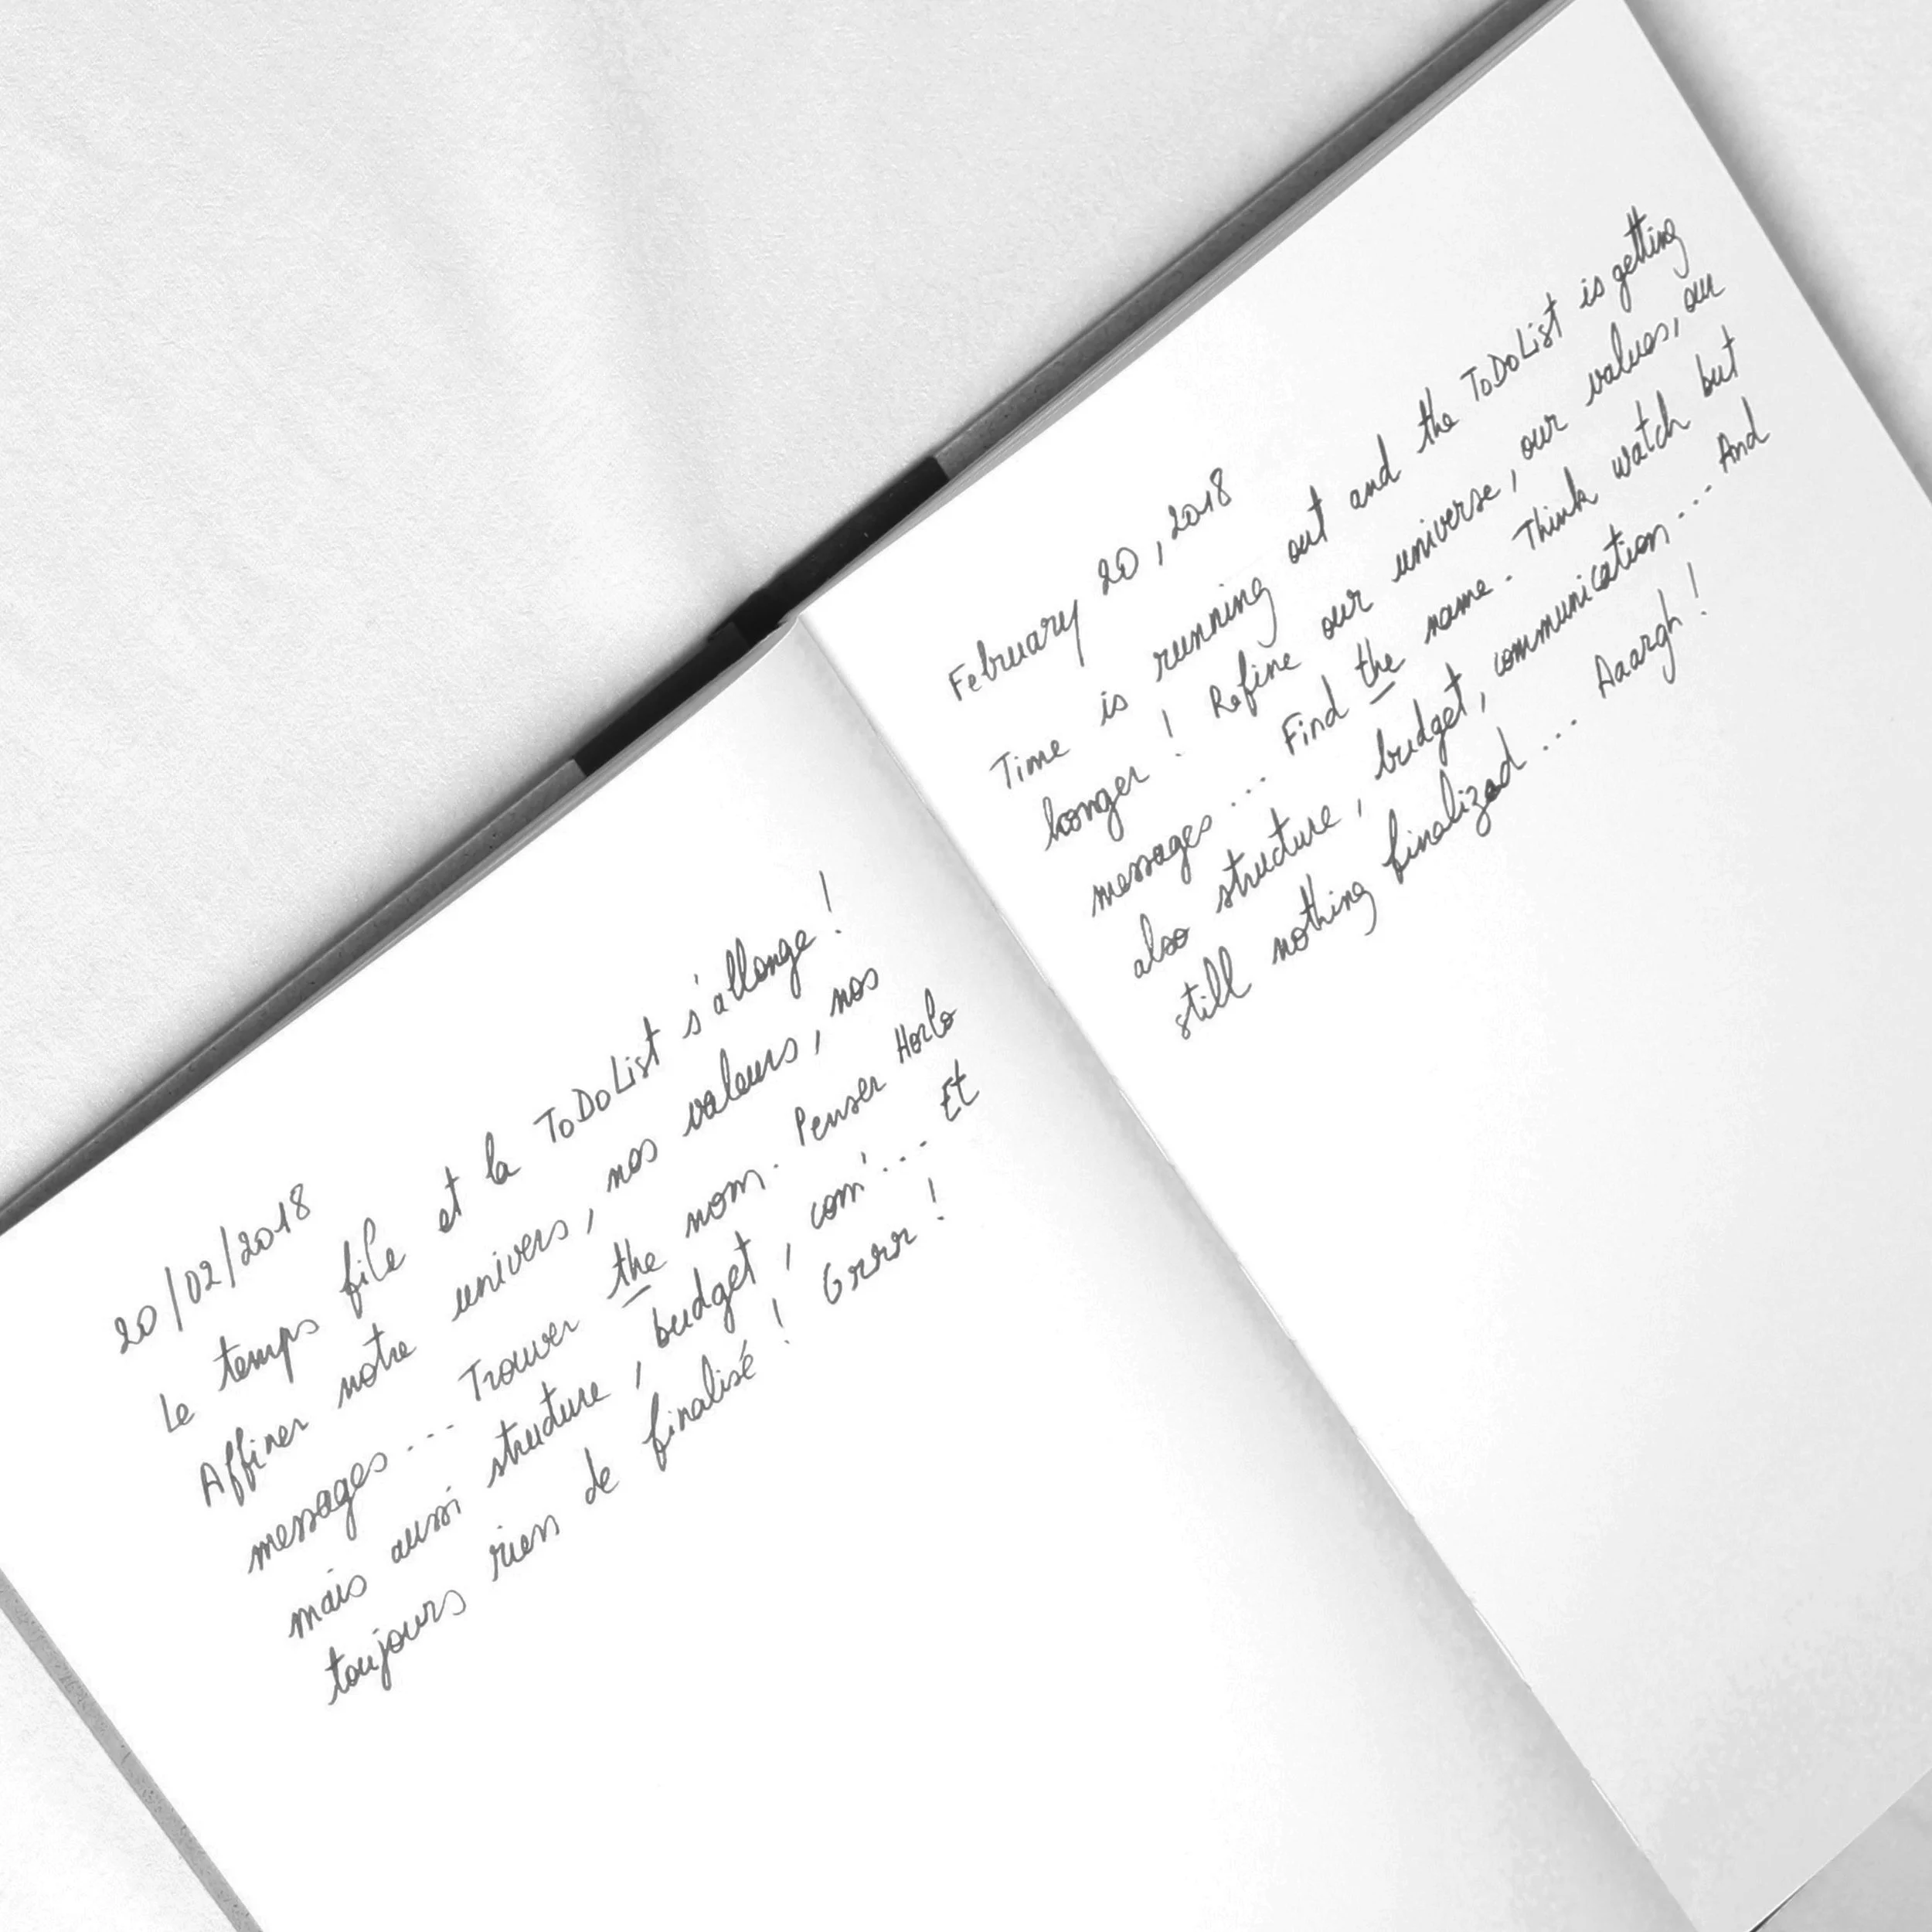 20/02/2018
Le temps file et la ToDoList s'allonge !
Affiner notre univers, nos valeurs, nos
messages... Trouver the nom. Penser Horlo
mais aussi structure, budget, com'... Et
toujours rien de finalisé ! Grrr !
February 20, 2018
Time is running out and the ToDoList is getting
longer ! Refine our universe, our values, our
messages... Find the name. Think watch but
also structure, budget, communication... And
still nothing finalized... Aaargh !